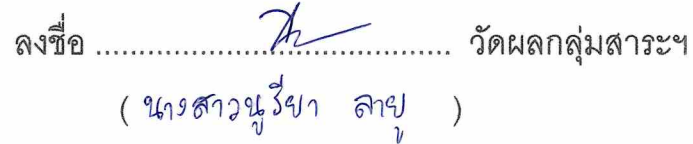 ลงชื่อ ............................................ วัดผลกลุ่มสาระฯ
( นางสาวนูรียา ลายู )